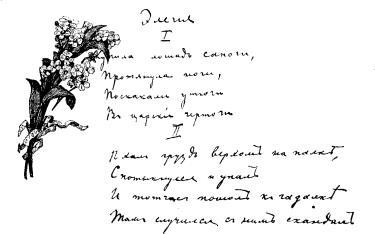 Элегия
I
лошадь сапоги,
Протянула ноги,
Поскакали утюги
Въ чертоги
II
Ѣхалъ груздь верхомъ на палкѣ,
Спотыкнулся и упалъ
И тотчасъ пошолъ къ гадалкѣ
Тамъ случился съ нимъ скандалъ